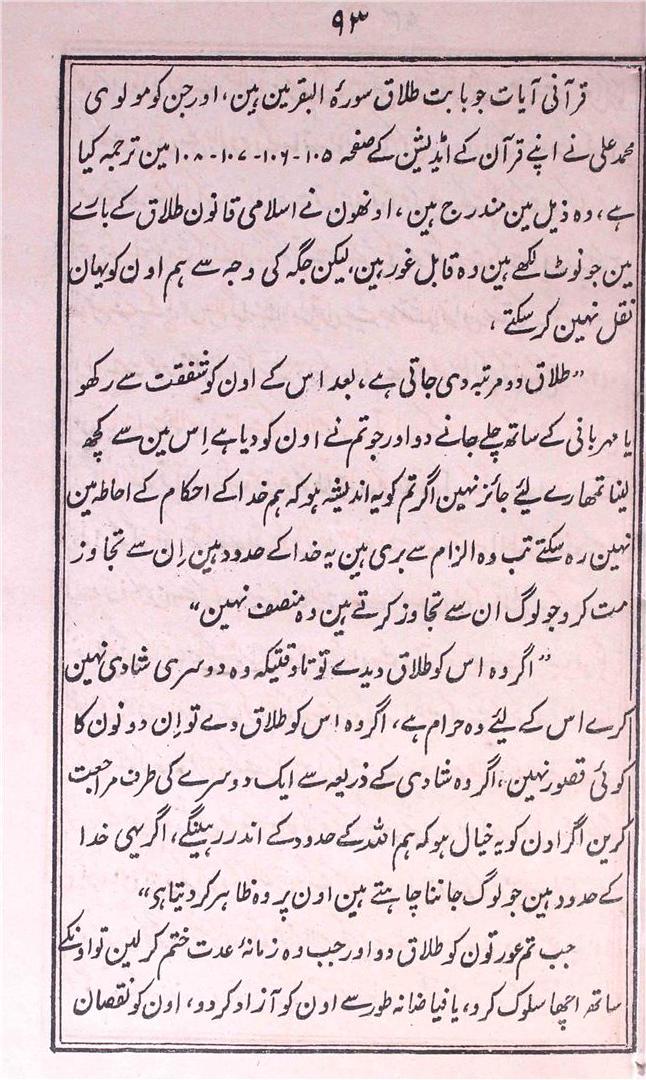 ۹۳
قرآنی آیات جو بابت طلاق سورۂ البقر مین ہین، اور جن کو مولوی
محمد علی نے اپنے قرآن کے اڈیشن کے صفحہ ۱۰۵-۱۰۶-۱۰۷-۱۰۸ مین ترجمہ کیا
ہے، وہ ذیل مین مندرج ہین، اونھون نے اسلامی قانون طلاق کے بارے
مین جو نوٹ لکھے ہین وہ قابل غور ہین، لیکن جگہ کی وجہ سے ہم اون کو یہان
نقل نہین کر سکتے،
”طلاق دو مرتبہ دی جاتی ہے، بعد اس کے اون کو شفقت سے رکھو
یا مہربانی کے ساتھ چلے جانے دو اور جو تم نے اون کو دیا ہے اِس مین سے کچھ
لینا تمھارے لیئے جائز نہین اگر تم کو یہ اندیشہ ہو کہ ہم خدا کے احکام کے احاطہ مین
نہین رہ سکتے تب وہ الزام سے بری ہین یہ خدا کے حدود ہین اِن سے تجاوز
مت کرو جو لوگ ان سے تجاوز کرتے ہین وہ منصف نہین“
”اگر وہ اس کو طلاق دیدے تو تا وقتیکہ وہ دوسری شادی نہین
کرے اس کے لیئے وہ حرام ہے، اگر وہ اس کو طلاق دے تو اِن دونون کا
کوئی قصور نہین، اگر وہ شادی کے ذریعہ سے ایک دوسرے کی طرف مراجعت
کرین اگر اون کو یہ خیال ہو کہ ہم اللہ کے حدود کے اندر رہینگے، اگر یہی خدا
کے حدود ہین جو لوگ جاننا چاہتے ہین اون پر وہ ظاہر کر دیتا ہی“
جب تم عورتون کو طلاق دو اور جب وہ زمانۂ عدت ختم کر لین تو اونکے
ساتھ اچھا سلوک کرو، یا فیاضانہ طور سے اون کو آزاد کر دو، اون کو نقصان